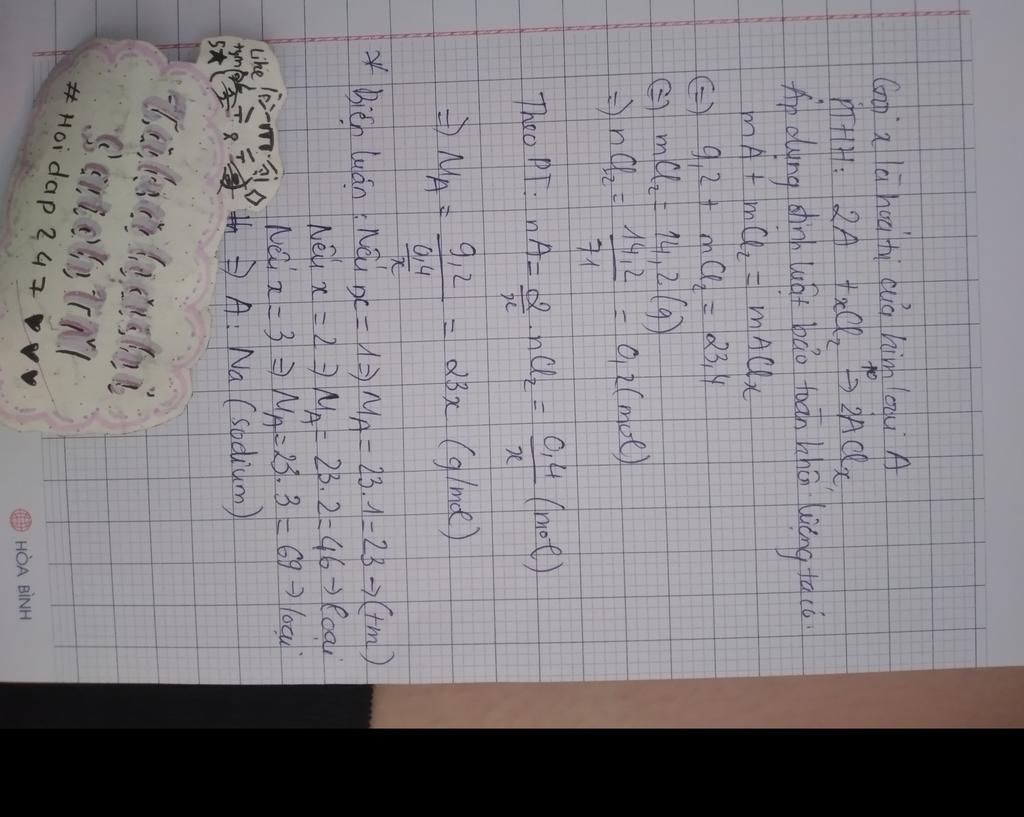 Gọi x là hóa trị của kim loại A
PTHH: 2A + xCl₂ →tº 2AClₓ
Áp dụng định luật bảo toàn khối lượng ta có:
mA + mCl₂ = mAClx
(=) 9,2 + mCl₂ = 23,4
(=) mCl₂ = 14,2 (g)
=) nCl₂ = 14,2/71 = 0,2 (mol)
Theo PT: nA = 2/x . nCl₂ = 0,4/x (mol)
=) M_A = 9,2/(0,4/x) = 23x (g/mol)
* Biện luận: Nếu x = 1 =) M_A = 23.1 = 23 → (tm)
Nếu x = 2 =) M_A = 23.2 = 46 → loại
Nếu x = 3 =) M_A = 23.3 = 69 → loại
=) A: Na (sodium)
Like
5★
#Hoidap247 ♥♥♥
HÒA BÌNH